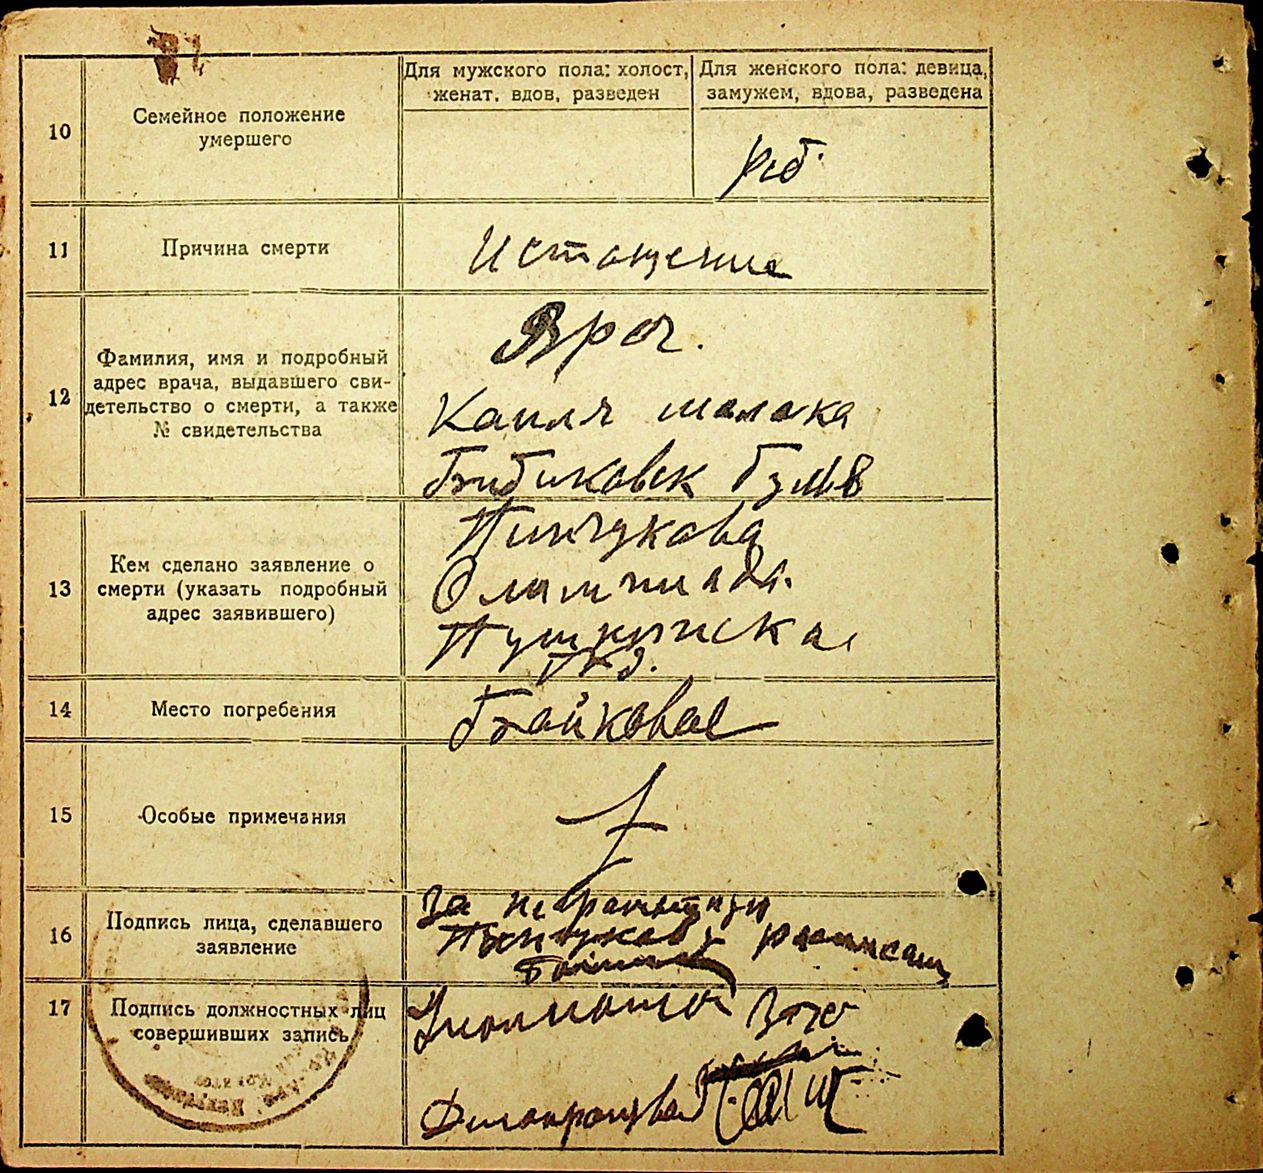 10
Семейное положение
умершего
Для мужского пола: холост,
женат, вдов, разведен
Для женского пола: девица,
замужем, вдова, разведена
реб.
11
Причина смерти
Истощение
12
Фамилия, имя и подробный
адрес врача, выдавшего сви-
детельство о смерти, а также
№ свидетельства
Врач.
Капля малака
Бибиковск бульв
13
Кем сделано заявление о
смерти (указать подробный
адрес заявившего)
Пинчукова
Олимпиада.
Пушкинска
14
Место погребения
Байковое
15
Особые примечания
16
Подпись лица, сделавшего
заявление
За неграмотную
Пинчукову
17
Подпись должностных лиц
совершивших запись